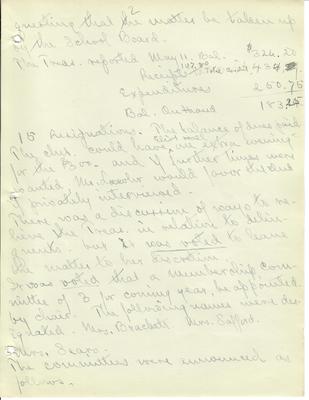 2
questing that the matter be taken up
by the School Board.
The Treas. reported May 11. Bal. $326.20
Receipts 107.80 Total 434
Expenditures 250.75
Bal. On hand 183.25
15 Resignations. The balance of dues paid
The club could have one extra evening
for the $ and if further times were
wanted, Mr. would favor the club
if privately interviewed.
There was a discussion of ways to re-
lieve the Treas. in relation to delin-
quents. but it was voted to leave
the matter to her discretion.
It was voted that a membership com-
mittee of 3 for coming year, be appointed
by chair. The following names were des-
ignated. Mrs. Brackett Mrs. Safford.
Mrs. Sears.
The committees were announced as
follows.